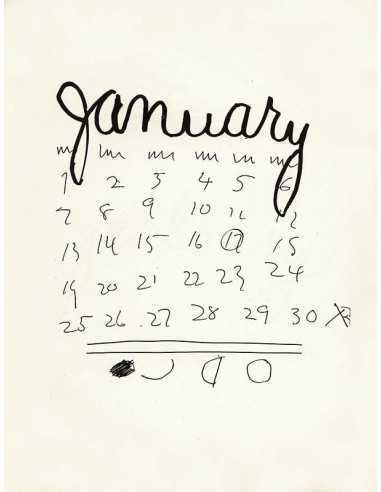 January
1 2 3 4 5 6
7 8 9 10 11 12
13 14 15 16 17 15
19 20 21 22 23 24
25 26 27 28 29 30